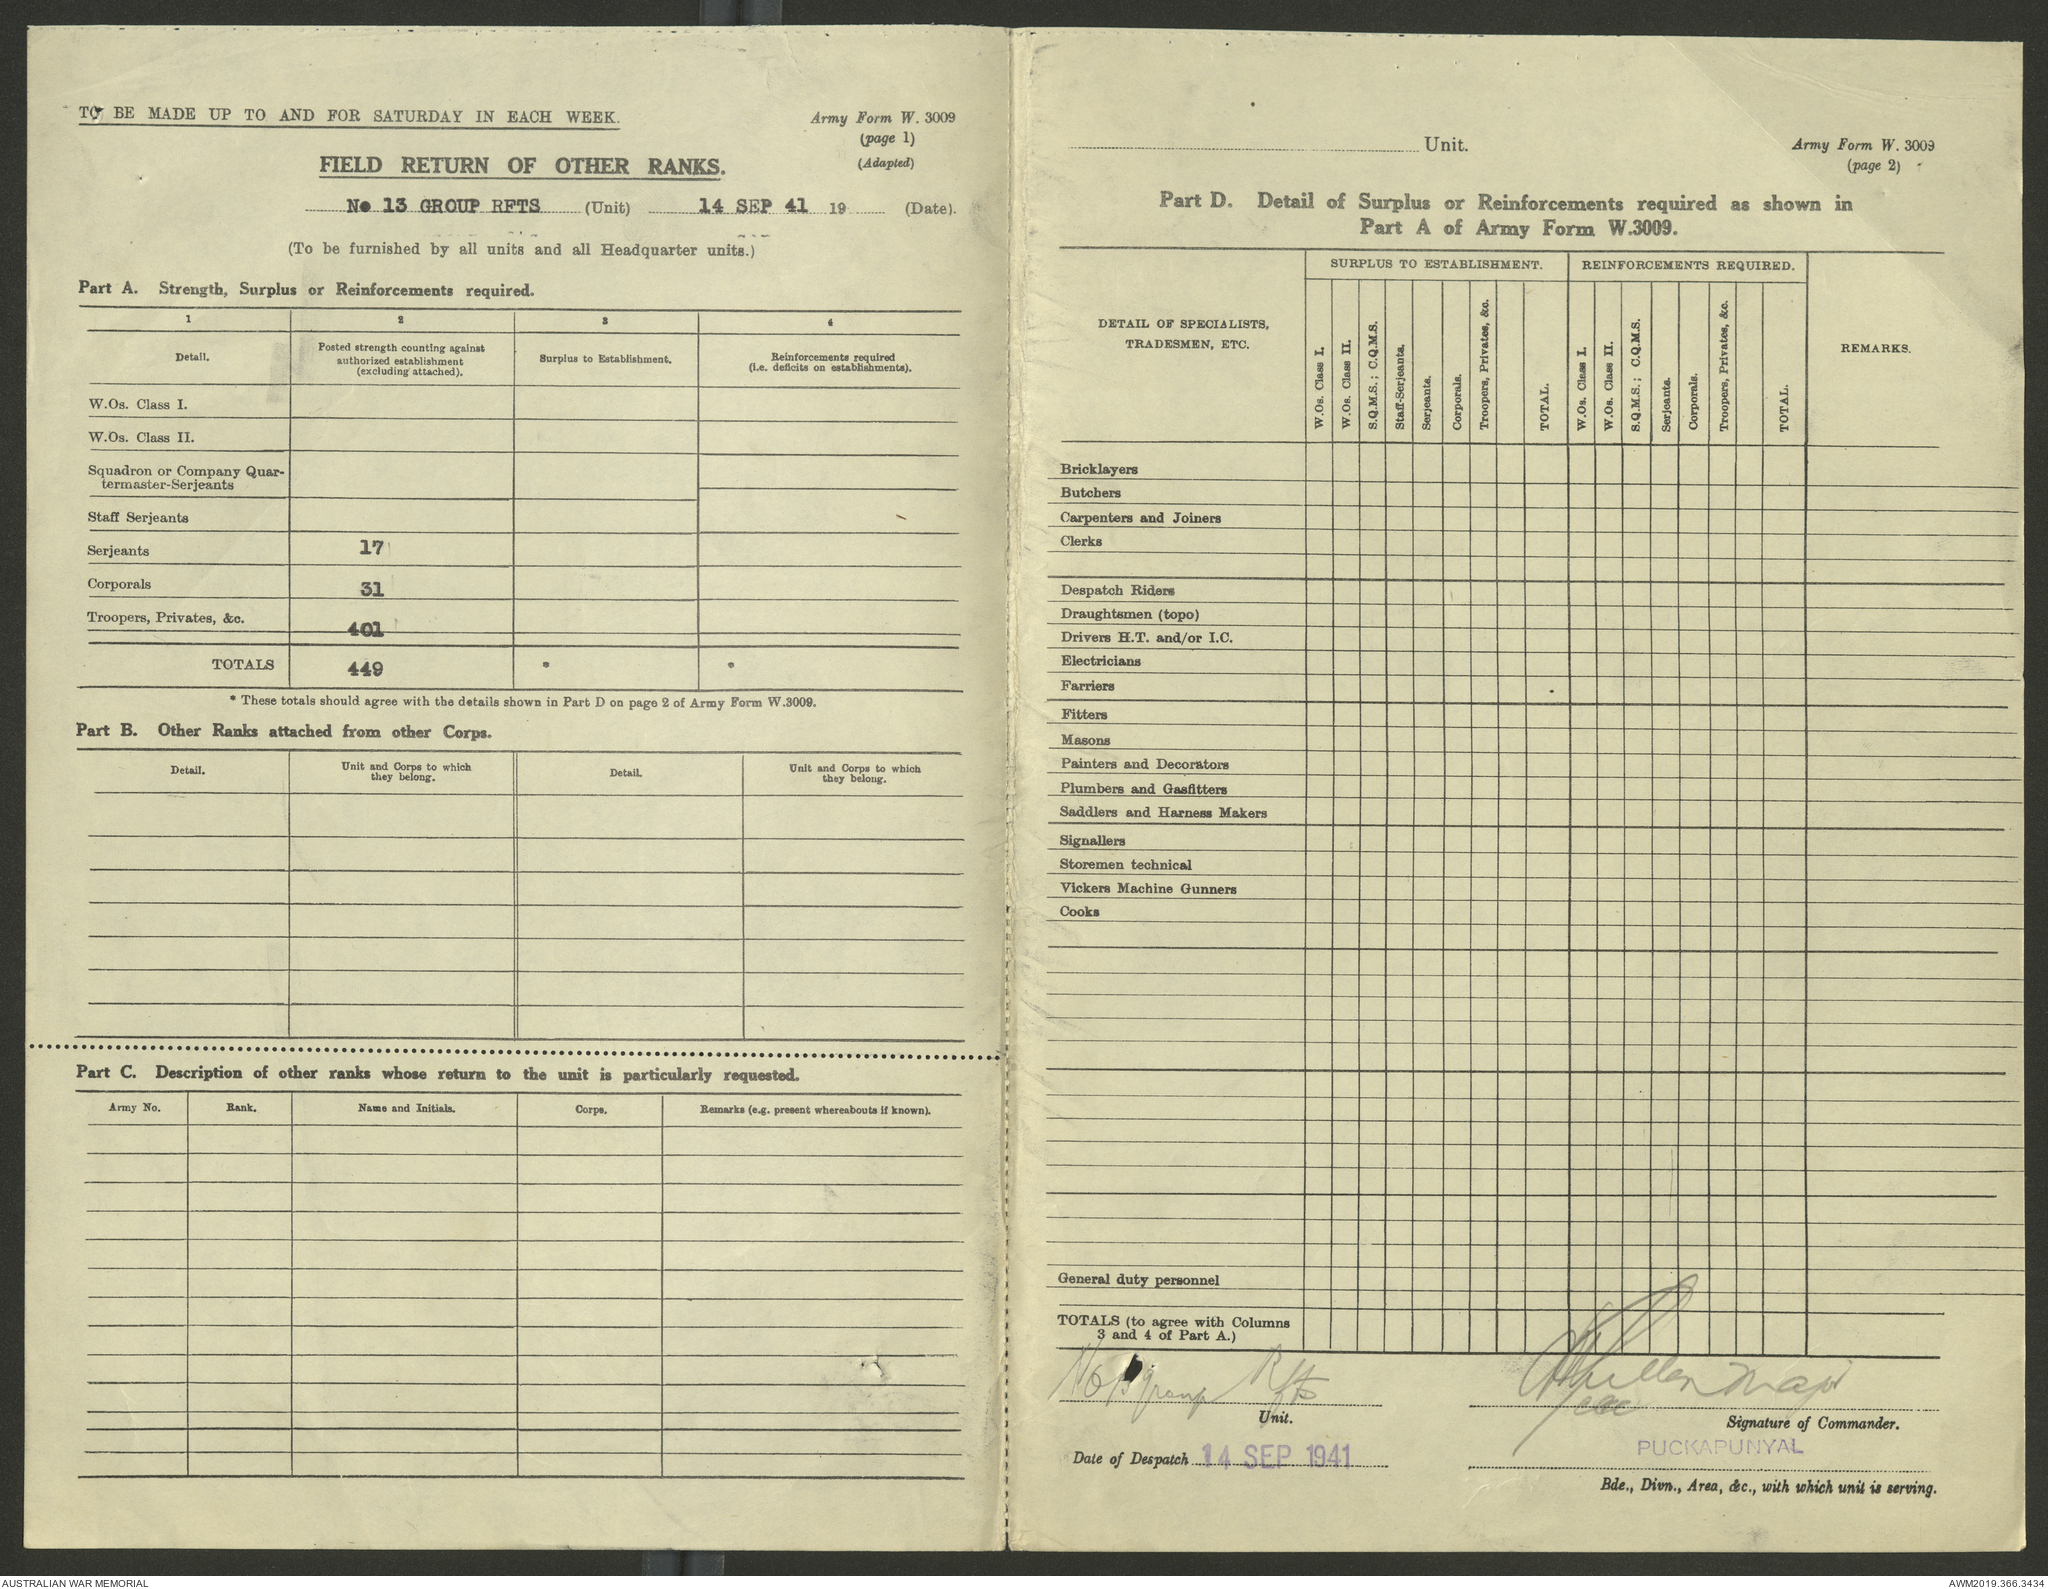 TO BE MADE UP TO AND FOR SATURDAY IN EACH WEEK.
Army Form W. 3009
(page 1)
(Adapted)
FIELD RETURN OF OTHER RANKS.
No 13 GROUP RFTS (Unit) 14 SEP 41 19 (Date).
(To be furnished by all units and all Headquarter units.)
Part A. Strength, Surplus or Reinforcements required.
1 2 3 4
Detail. Posted strength counting against authorized establishment (excluding attached). Surplus to Establishment. Reinforcements required (i.e. deficits on establishments).
W.Os. Class I.
W.Os. Class II.
Squadron or Company Quar-
termaster-Serjeants
Staff Serjeants
Serjeants 17
Corporals 31
Troopers, Privates, &c. 401
TOTALS 449 * *
* These totals should agree with the details shown in Part D on page 2 of Army Form W.3009.
Part B. Other Ranks attached from other Corps.
Detail. Unit and Corps to which they belong. Detail. Unit and Corps to which they belong.
Part C. Description of other ranks whose return to the unit is particularly requested.
Army No. Rank. Name and Initials. Corps. Remarks (e.g. present whereabouts if known).
Unit.
Army Form W. 3009
(page 2)
Part D. Detail of Surplus or Reinforcements required as shown in
Part A of Army Form W.3009.
DETAIL OF SPECIALISTS,
TRADESMEN, ETC.
SURPLUS TO ESTABLISHMENT. REINFORCEMENTS REQUIRED.
REMARKS.
W.Os. Class I.
W.Os. Class II.
S.Q.M.S.; C.Q.M.S.
Staff-Serjeants.
Serjeants.
Corporals.
Troopers, Privates, &c.
TOTAL.
W.Os. Class I.
W.Os. Class II.
S.Q.M.S.; C.Q.M.S.
Serjeants.
Corporals.
Troopers, Privates, &c.
TOTAL.
Bricklayers
Butchers
Carpenters and Joiners
Clerks
Despatch Riders
Draughtsmen (topo)
Drivers H.T. and/or I.C.
Electricians
Farriers
Fitters
Masons
Painters and Decorators
Plumbers and Gasfitters
Saddlers and Harness Makers
Signallers
Storemen technical
Vickers Machine Gunners
Cooks
General duty personnel
TOTALS (to agree with Columns
3 and 4 of Part A.)
No 13 group Rfts
Unit.
Major
Signature of Commander.
Date of Despatch 14 SEP 1941
PUCKAPUNYAL
Bde., Divn., Area, &c., with which unit is serving.
AUSTRALIAN WAR MEMORIAL
AWM2019.366.3434